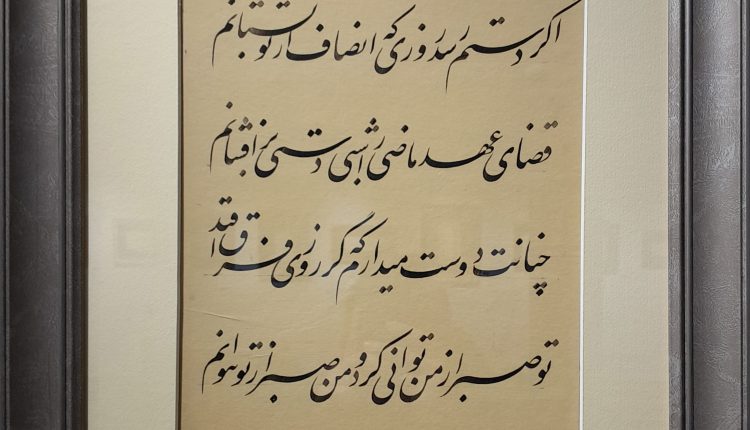 اگر دستم رسد روزی که انصاف از تو بستانم
قضای عهد ماضی را شبی دستی برافشانم
چنانت دوست میدارم که گر روزی فراق افتد
تو صبر از من توانی کرد و من صبر از تو نتوانم